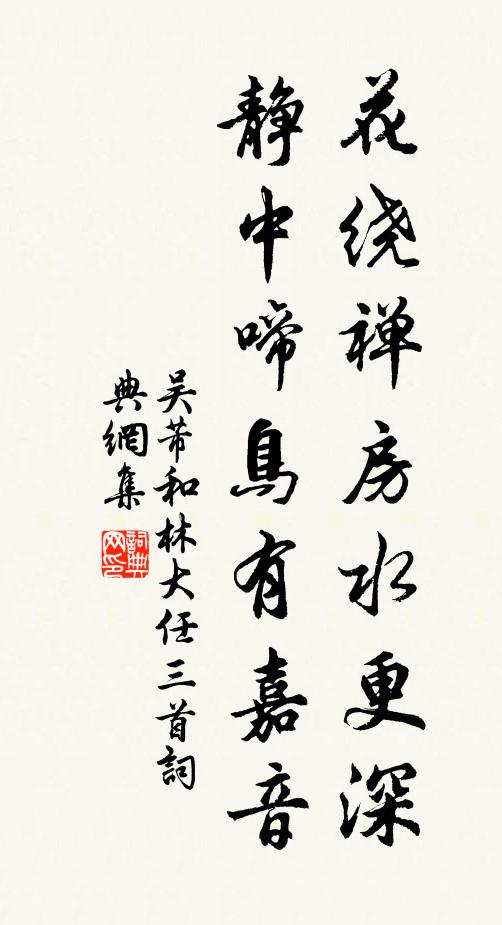 花绕禅房水更深
静中啼鳥有嘉音
吴芾和林大任三首詞
典網集
詞典
网印